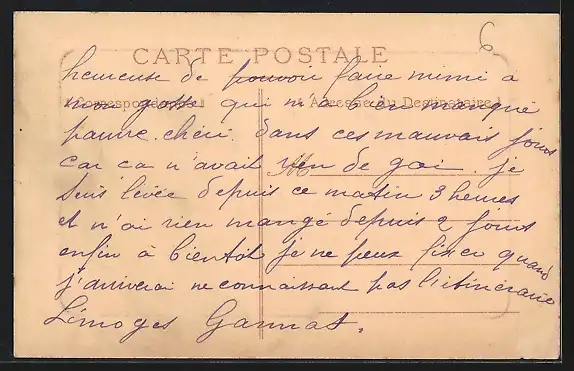 6
CARTE POSTALE
heureuse de pouvoir faire mimi à
Correspondance Adresse du Destinataire
mon gosse qui m'a bien manqué
pauvre chéri dans ces mauvais jours
car ca n'avait rien de gai. je
suis levée depuis ce matin 3 heures
et n'ai rien mangé depuis 2 jours
enfin à bientot je ne peux fixer quand
j'arriverai ne connaissant pas l'itineraire
Limoges Gannat.